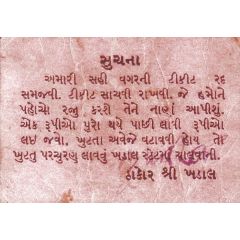 સુચના
અમારી સહી વગરની ટીકીટ રદ
સમજવી. ટીકીટ સાચવી રાખવી. જે હમોને
પહોંચ્યે રજુ કરશે તેને નાણાં આપીશું.
એક રૂપીઆ પુરા થયે પાછી લાવી રૂપીઓ
લઇ જવા. ખુટતા અવેજે વટાવવી હોય તો
ખુટતુ પરચુરણ લાવવું ખડાલ સ્ટેટમાં ચાલવાની.
ઠાકોર શ્રી ખડાલ